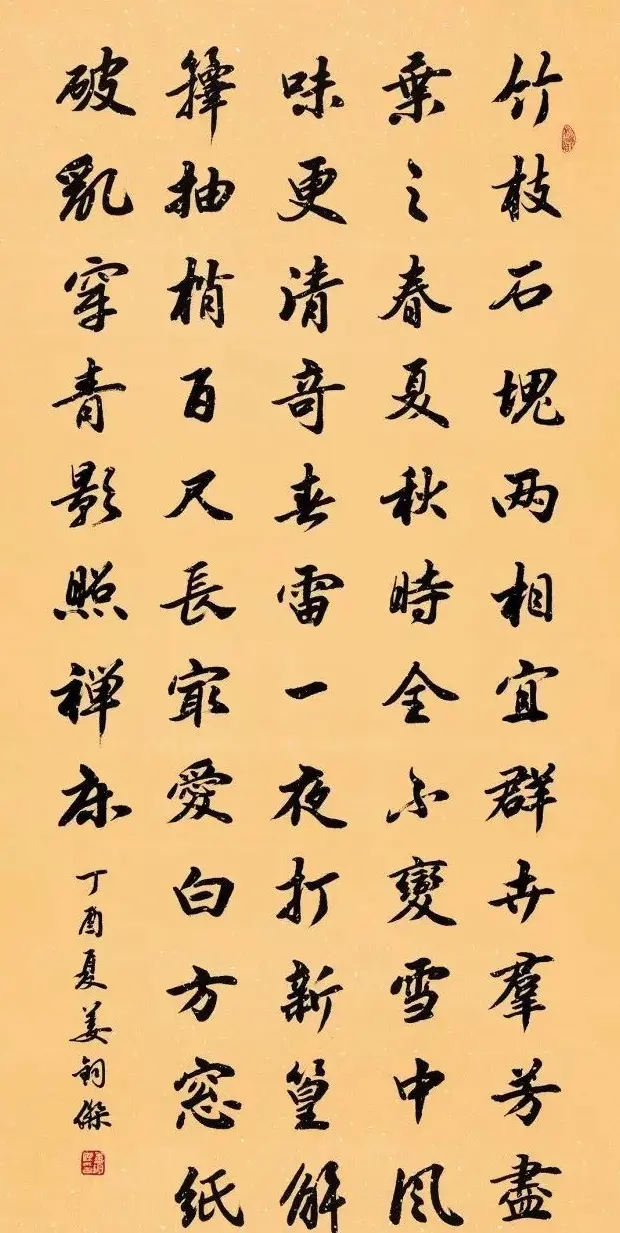 竹枝石塊两相宜群卉羣芳盡
棄之春夏秋時全不變雪中風
味更清奇春雷一夜打新篁解
籜抽梢百尺長㝡愛白方窓紙
破亂穿青影照禪床
丁酉夏姜鈞傑